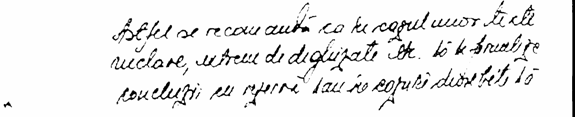 Astfel se recomandă ca în cazul unor texte
neclare, extrem de deghizate etc. să se formuleze
concluzii cu rezerve sau în cazuri deosebite să